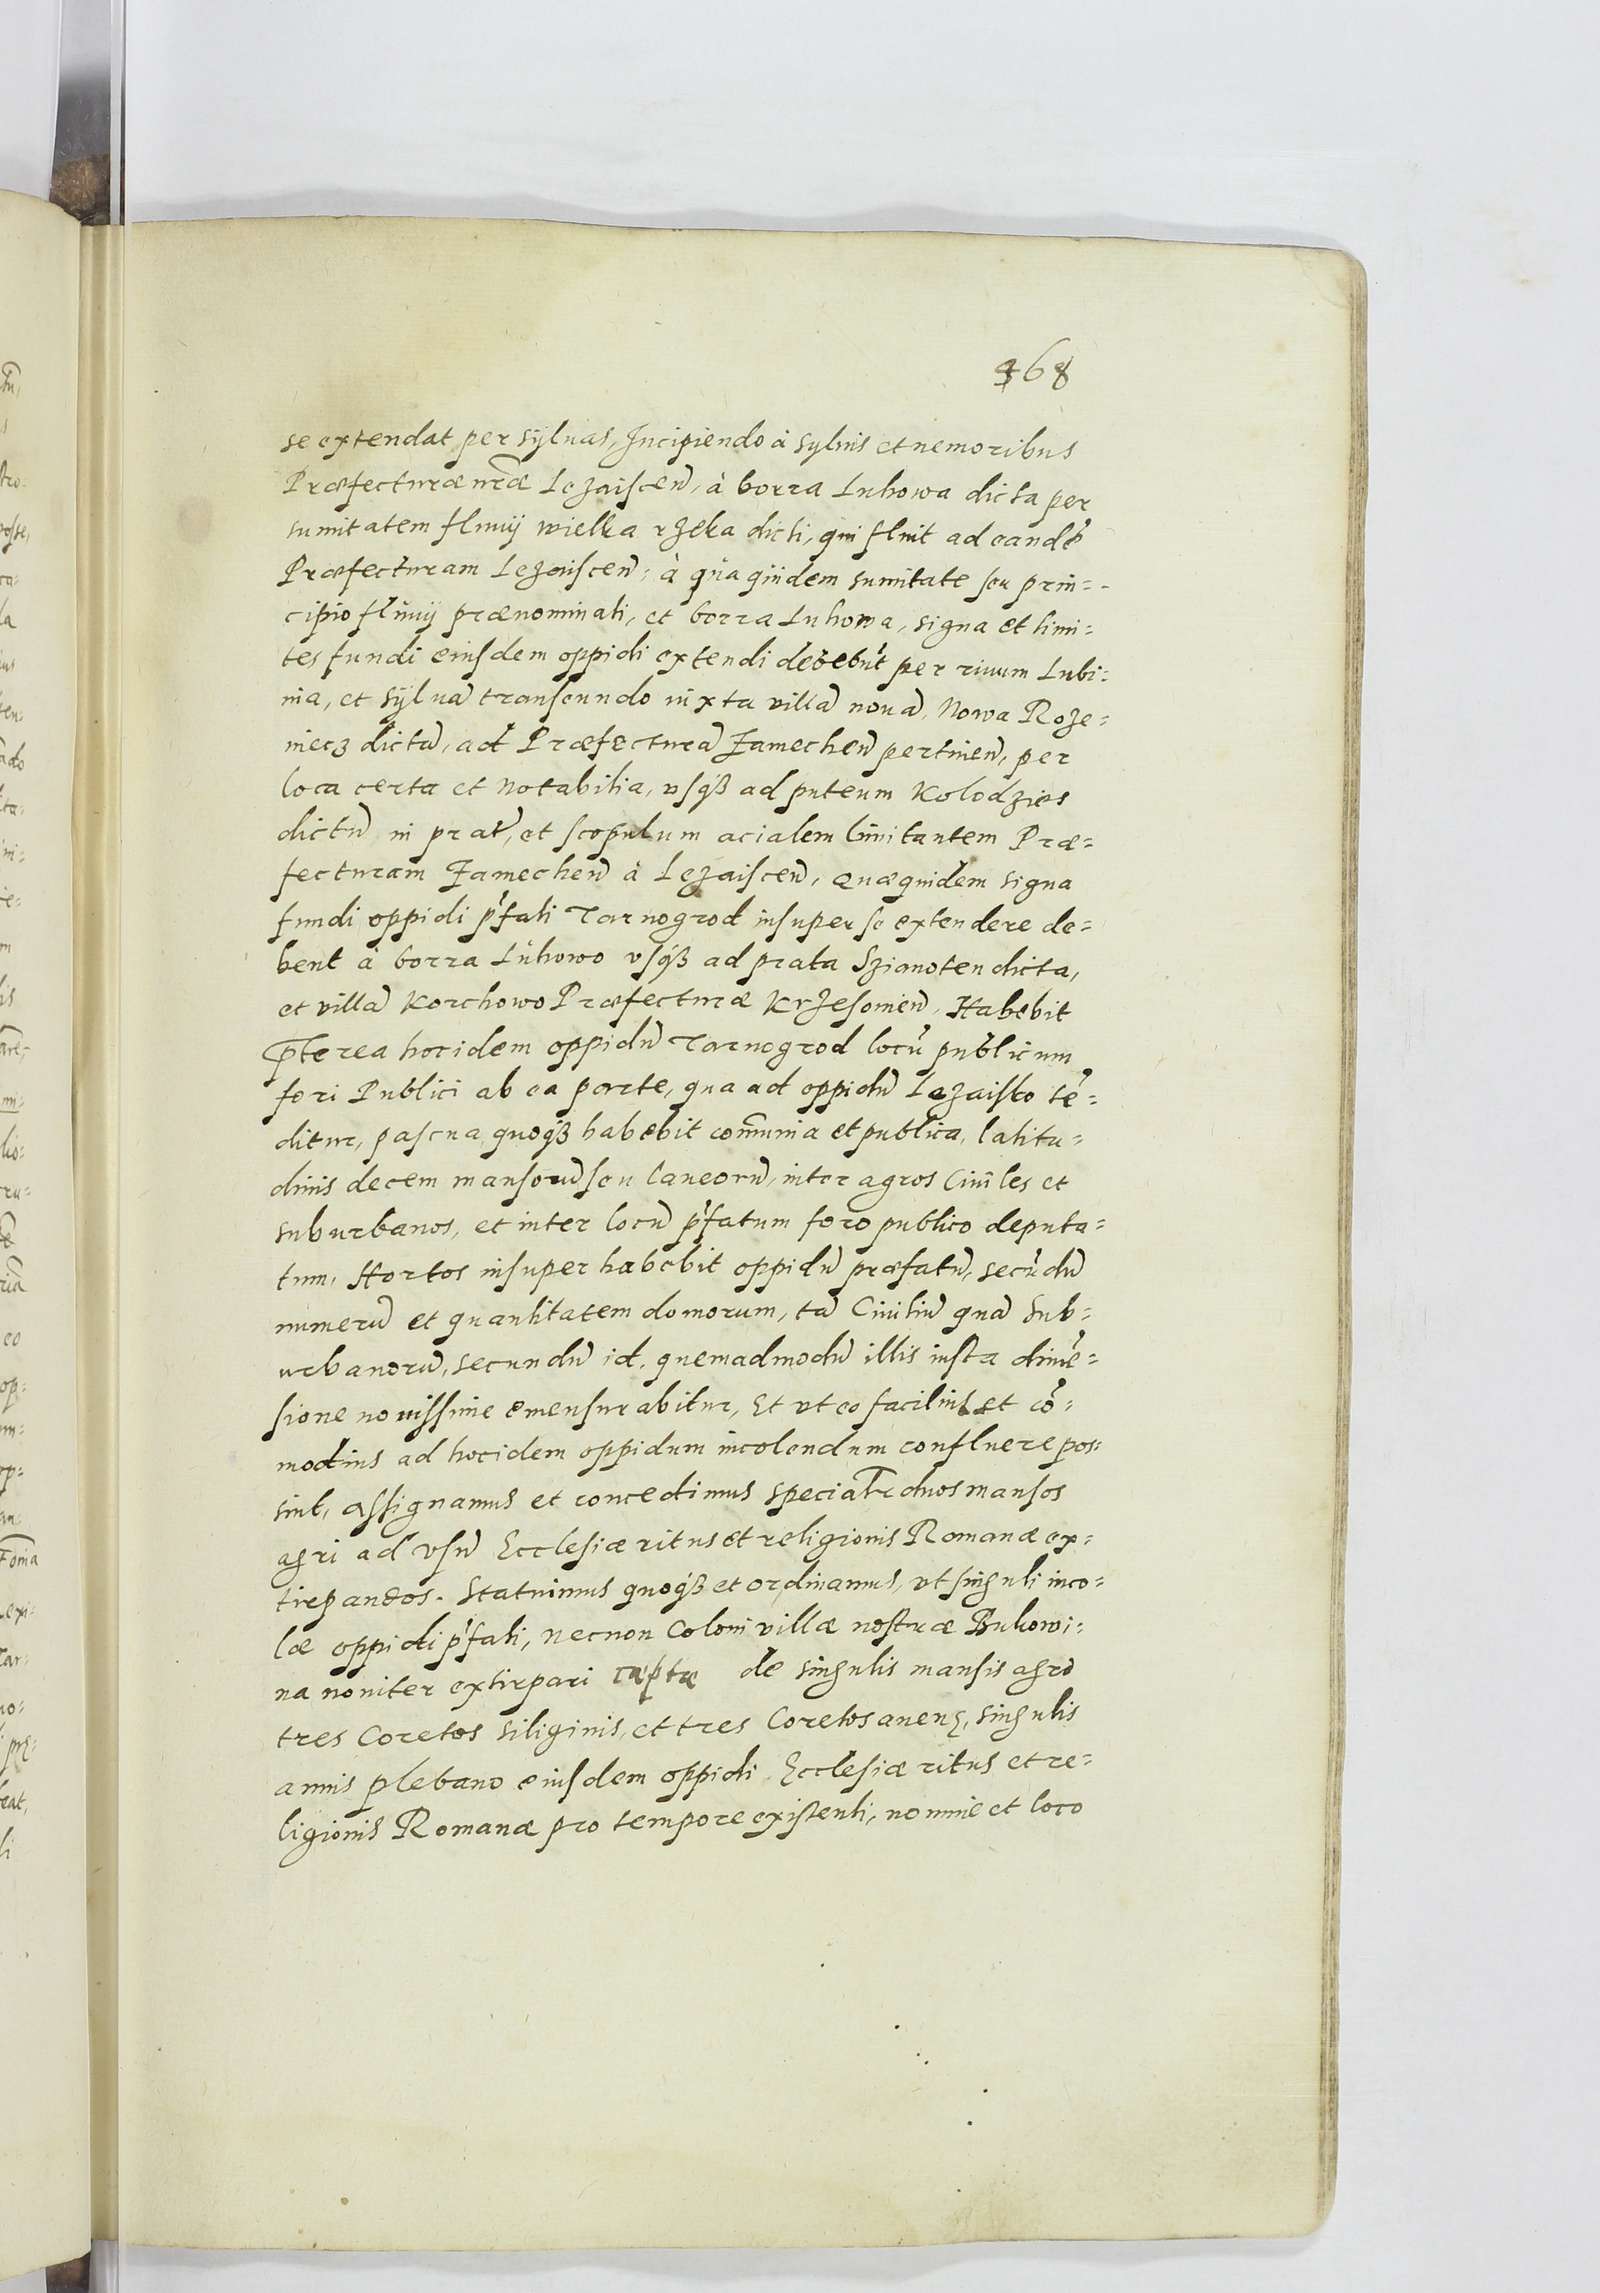 368
se extendat per sÿluas, Incipiendo à syluis et nemoribus
Præfecturæ nr̃æ Lezaiscen̄, à borra Luhowa dicta per
sumitatem fluuij wielka rzeka dicti, qui fluit ad eandẽ
Præfecturam Lezaiscen̄, à qua quidem sumitate seu prin=
cipio fluuij prænominati, et borra Luhowa, signa et limi=
tes fundi eiusdem oppidi extendi debebũt per riuum Lubi=
nia, et sÿluã transeundo iuxta villã nouã, Nowa Roze=
niecz dictã, ad Præfecturã Zamechen̄ pertinen̄, per
loca certa et notabilia, vsq₃ ad puteum Kolodzies
dictũ in prat̃, et scopulum acialem limitantem Præ=
fecturam Zamechen̄ à Lezaiscen̄, quæquidem signa
fundi oppidi p̃fati Tarnogrod insuper se extendere de=
bent à borra Luhowo vsq₃ ad prata Szianoten dicta,
et villã Korchowo Præfecturæ Krzesouien̄. Habebit
p̃terea hocidem oppidũ Tarnogrod locũ publicum
fori Publici ab ea parte, qua ad oppidũ Lezaisko tẽ=
ditur, pascua quoq₃ habebit com̃unia et publica, latitu=
dinis decem mansorũ seu laneorũ, inter agros Ciuiles et
suburbanos, et inter locũ p̃fatum foro publico deputa=
tum, Hortos insuper habebit oppidũ præfatũ, secũdũ
numerũ et quantitatem domorum, tã Ciuiliũ quã sub=
urbanorũ, secundũ id, quemadmodũ illis iusta dimẽ=
sione nouissime emensurabitur, Et vt eo facilius et cõ=
modius ad hocidem oppidum incolendum confluere pos=
sint, assignamus et concedimus specialr̃ duos mansos
agri ad vsũ Ecclesiæ ritus et religionis Romanæ ex=
tirpandos. Statuimus quoq₃ et ordinamus, vt singuli inco=
læ oppidi p̃fati, necnon Coloni villæ nostræ Bukowi=
na nouiter extirpari cæptæ de singulis mansis agro
tres Coretos siliginis, et tres Coretos auenę, singulis
annis plebano eiusdem oppidi Ecclesiæ ritus et re=
ligionis Romanæ pro tempore existenti, nomine et loco